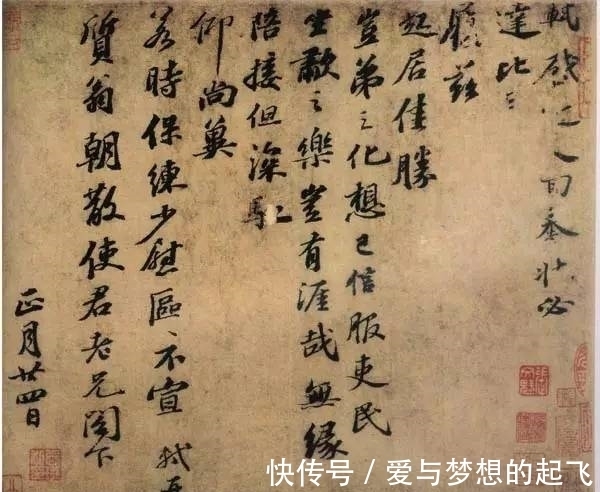 軾啓近人回奉狀必
達比日
履茲
起居佳勝
豈弟之化想已信服吏民
坐歗之樂豈有涯哉無緣
陪接但深馳
仰尚冀
若時保練少慰區〻不宣 軾再
質翁朝散使君老兄閣下
正月廿四日
快传号 / 爱与梦想的起飞